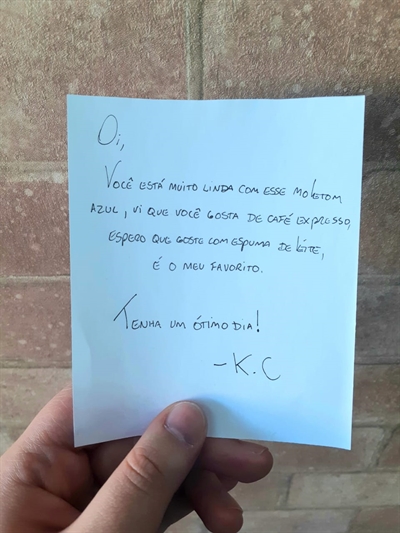 Oi,
VOCÊ ESTÁ MUITO LINDA COM ESSE MOLETOM
AZUL, VI QUE VOCÊ GOSTA DE CAFÉ EXPRESSO,
ESPERO QUE GOSTE COM ESPUMA DE LEITE,
É O MEU FAVORITO.
TENHA UM ÓTIMO DIA!
- K.C